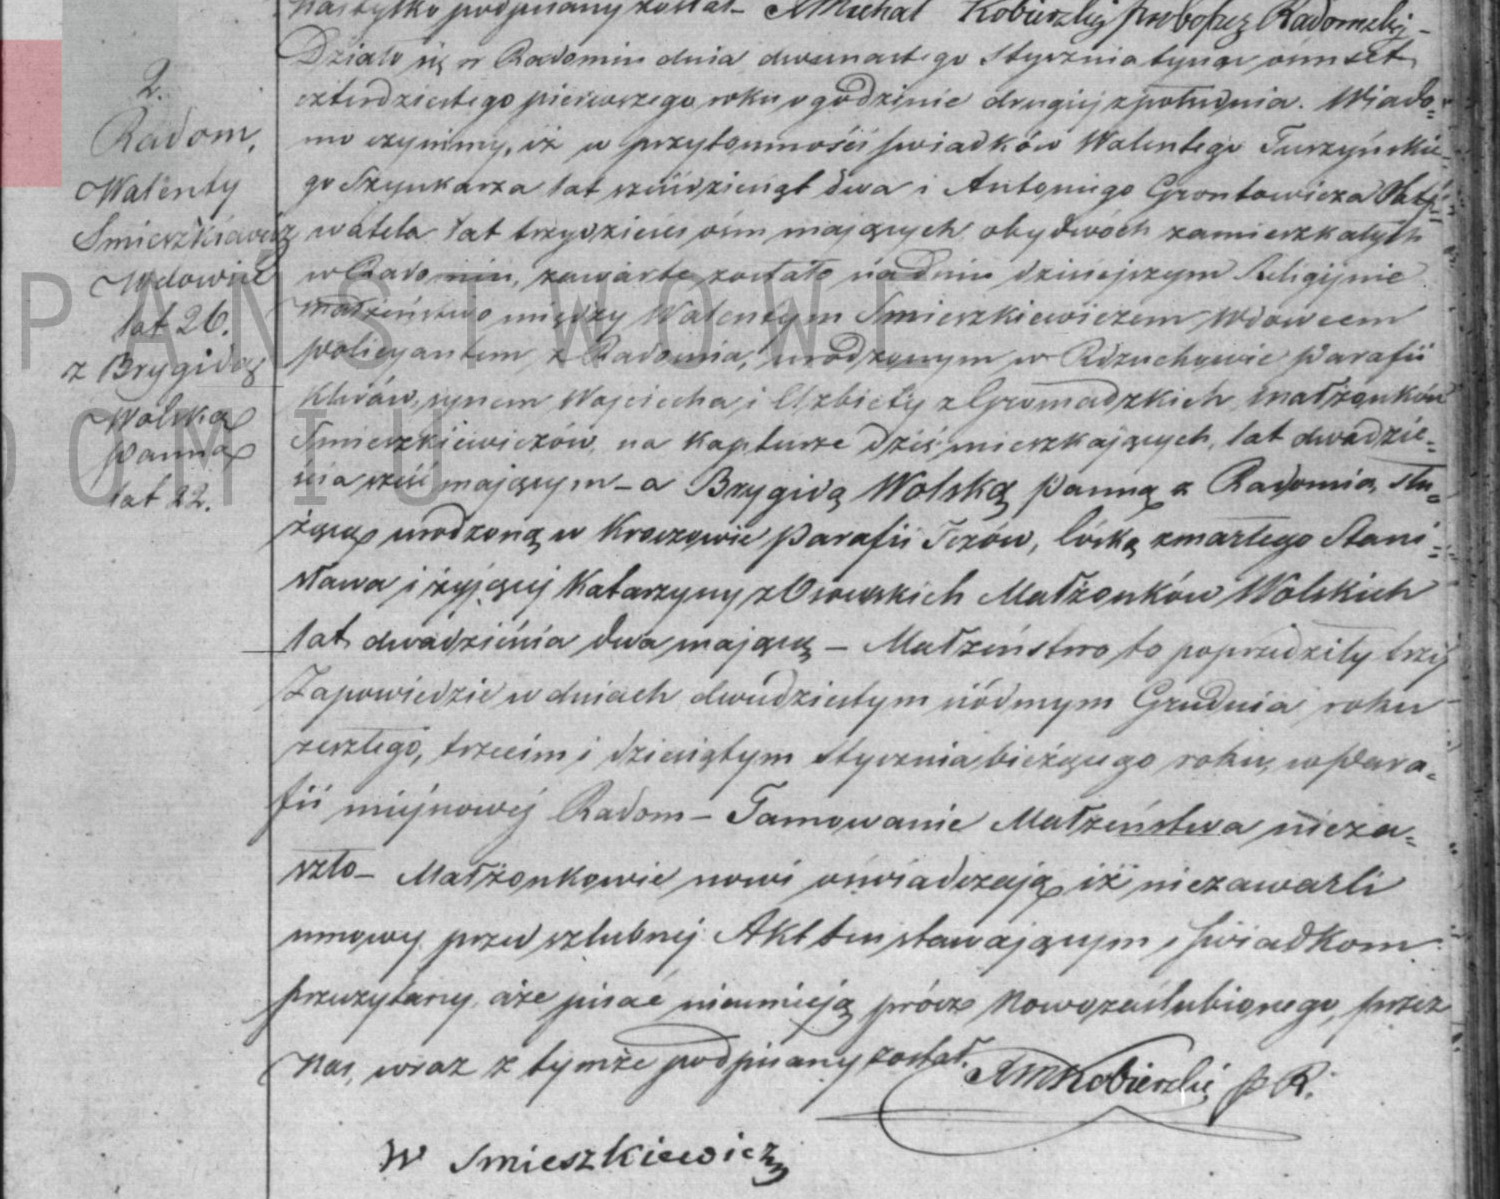 nas tylko podpisany został – XMichał Kobierzki proboszcz Radomski –
2.
Radom,
Walenty
Smieszkiewicz
Wdowiec
lat 26.
z Brygidą
Wolską
panną
lat 22.
Działo się w Radomiu dnia dwunastego Stycznia tysiąc ośmset
czterdziestego pierwszego roku o godzinie drugiej z południa. Wiado-
mo czynimy, iż w przytomności świadków Walentego Turzyńskie-
go Szynkarza lat sześćdziesiąt dwa i Antoniego Grontowicza Oby-
watela lat trzydzieści ośm mających obydwóch zamieszkałych
w Radomiu, zawarte zostało na dniu dzisiejszym Religijnie
małżeństwo między Walentym Smieszkiewiczem Wdowcem
policyantem z Radomia, urodzonym w Rdzuchowie parafii
Klwów, synem Wojciecha i Elzbiety z Gromadzkich małżonków
Smieszkiewiczów, na Kapturze dziś mieszkających, lat dwadzie-
ścia sześć mającym – a Brygidą Wolską panną z Radomia, słu-
żącą urodzoną w Kroczowie parafii Tczów, córką zmarłego Stani-
sława i żyjącej Katarzyny z Osowskich Małżonków Wolskich
lat dwadzieścia dwa mającą – Małżeństwo to poprzedziły trzy
Zapowiedzie w dniach dwudziestym siódmym Grudnia roku
zeszłego, trzecim i dziesiątym stycznia bieżącego roku, w para-
fii miejscowej Radom – Tamowanie Małżeństwa nieza-
szło – Małżonkowie nowi oświadczają iż niezawarli
umowy przed szlubnej. Akt ten stawającym i świadkom
przeczytany, a że pisać nieumieją prócz Nowozaślubionego, przez
Nas, wraz z tymże podpisany został.
XMKobierzki p R.
W Smieszkiewicz